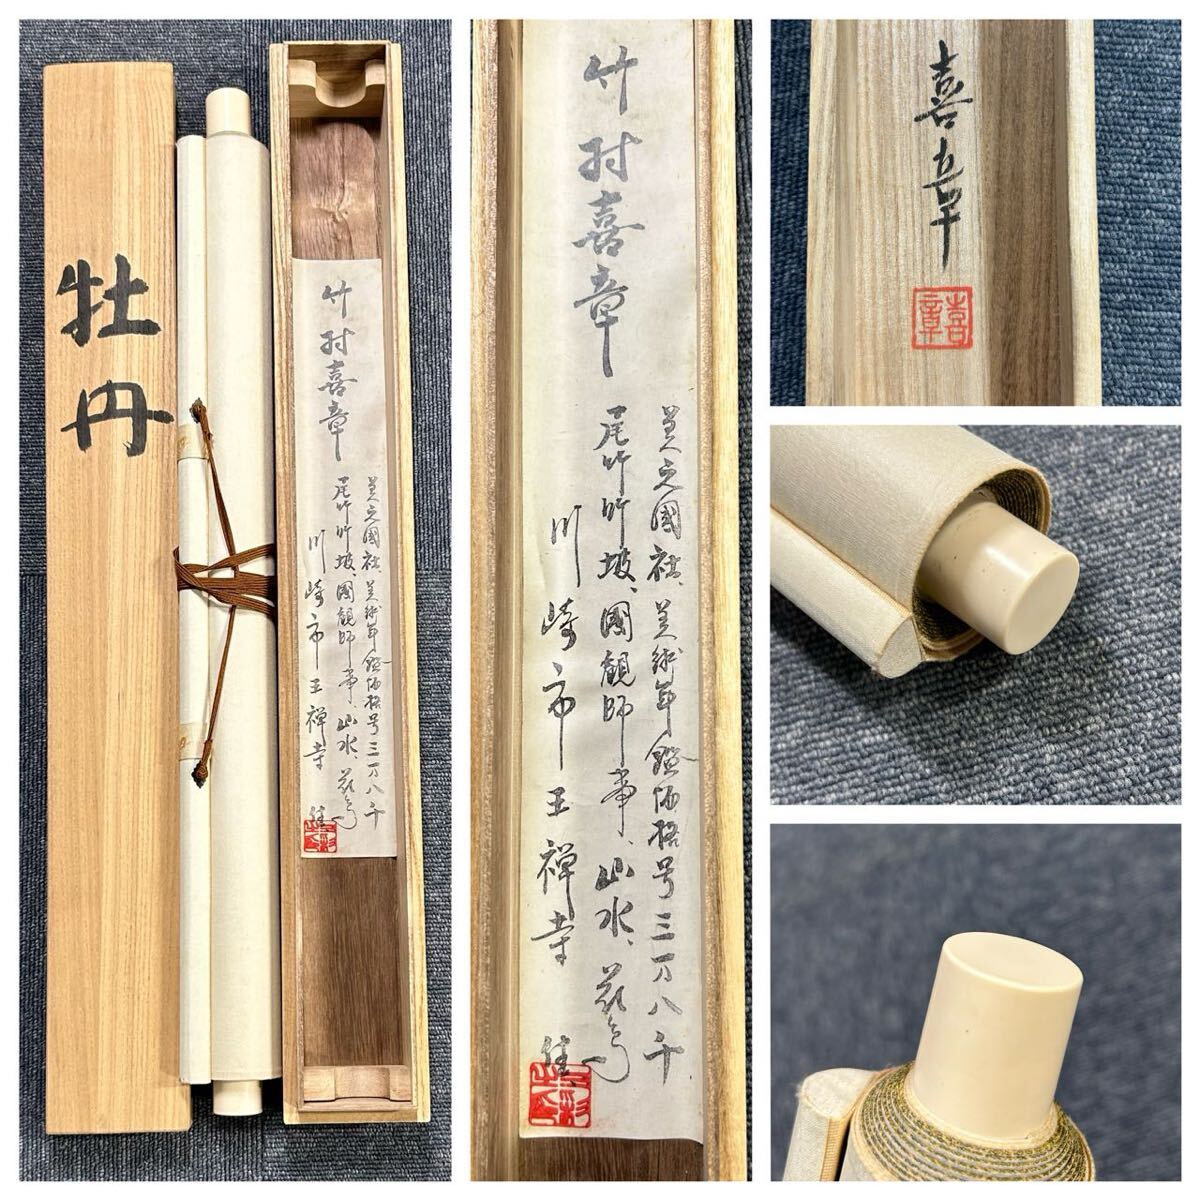 牡丹
竹村喜章
美之國社、美術年鑑価格号三万八千
尾竹竹坡、國観師事、山水、花鳥
川崎市王禅寺 住
竹村喜章
美之國社、美術年鑑価格号三万八千
尾竹竹坡、國観師事、山水、花鳥
川崎市王禅寺 住
喜章
喜章